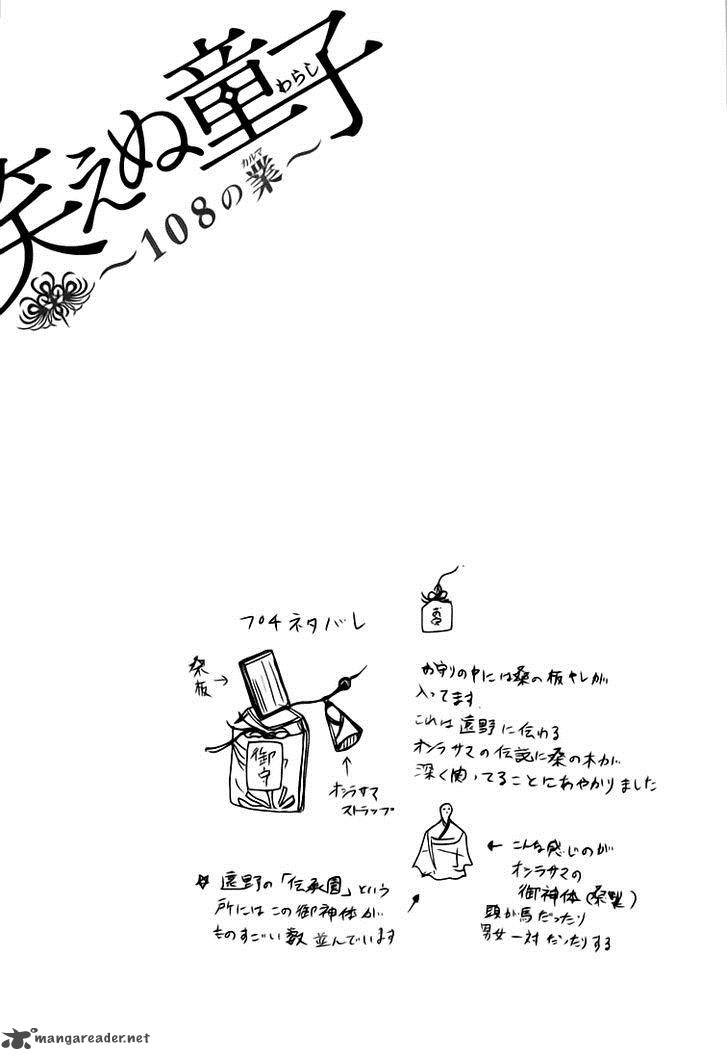 笑えぬ童子
わらし
～108の業～
カルマ
プチネタバレ
桑板→
御守
オシラサマ
ストラップ
お守りの中には桑の板キレが
入ってます。
これは遠野に伝わる
オシラサマの伝説に桑の木が
深く関ってることにあやかりました
← こんな感じのが
オシラサマの
御神体(桑製)
頭が馬だったり
男女一対だったりする
☆ 遠野の「伝承園」という
所にはこの御神体が
ものすごい数並んでいます
mangareader.net